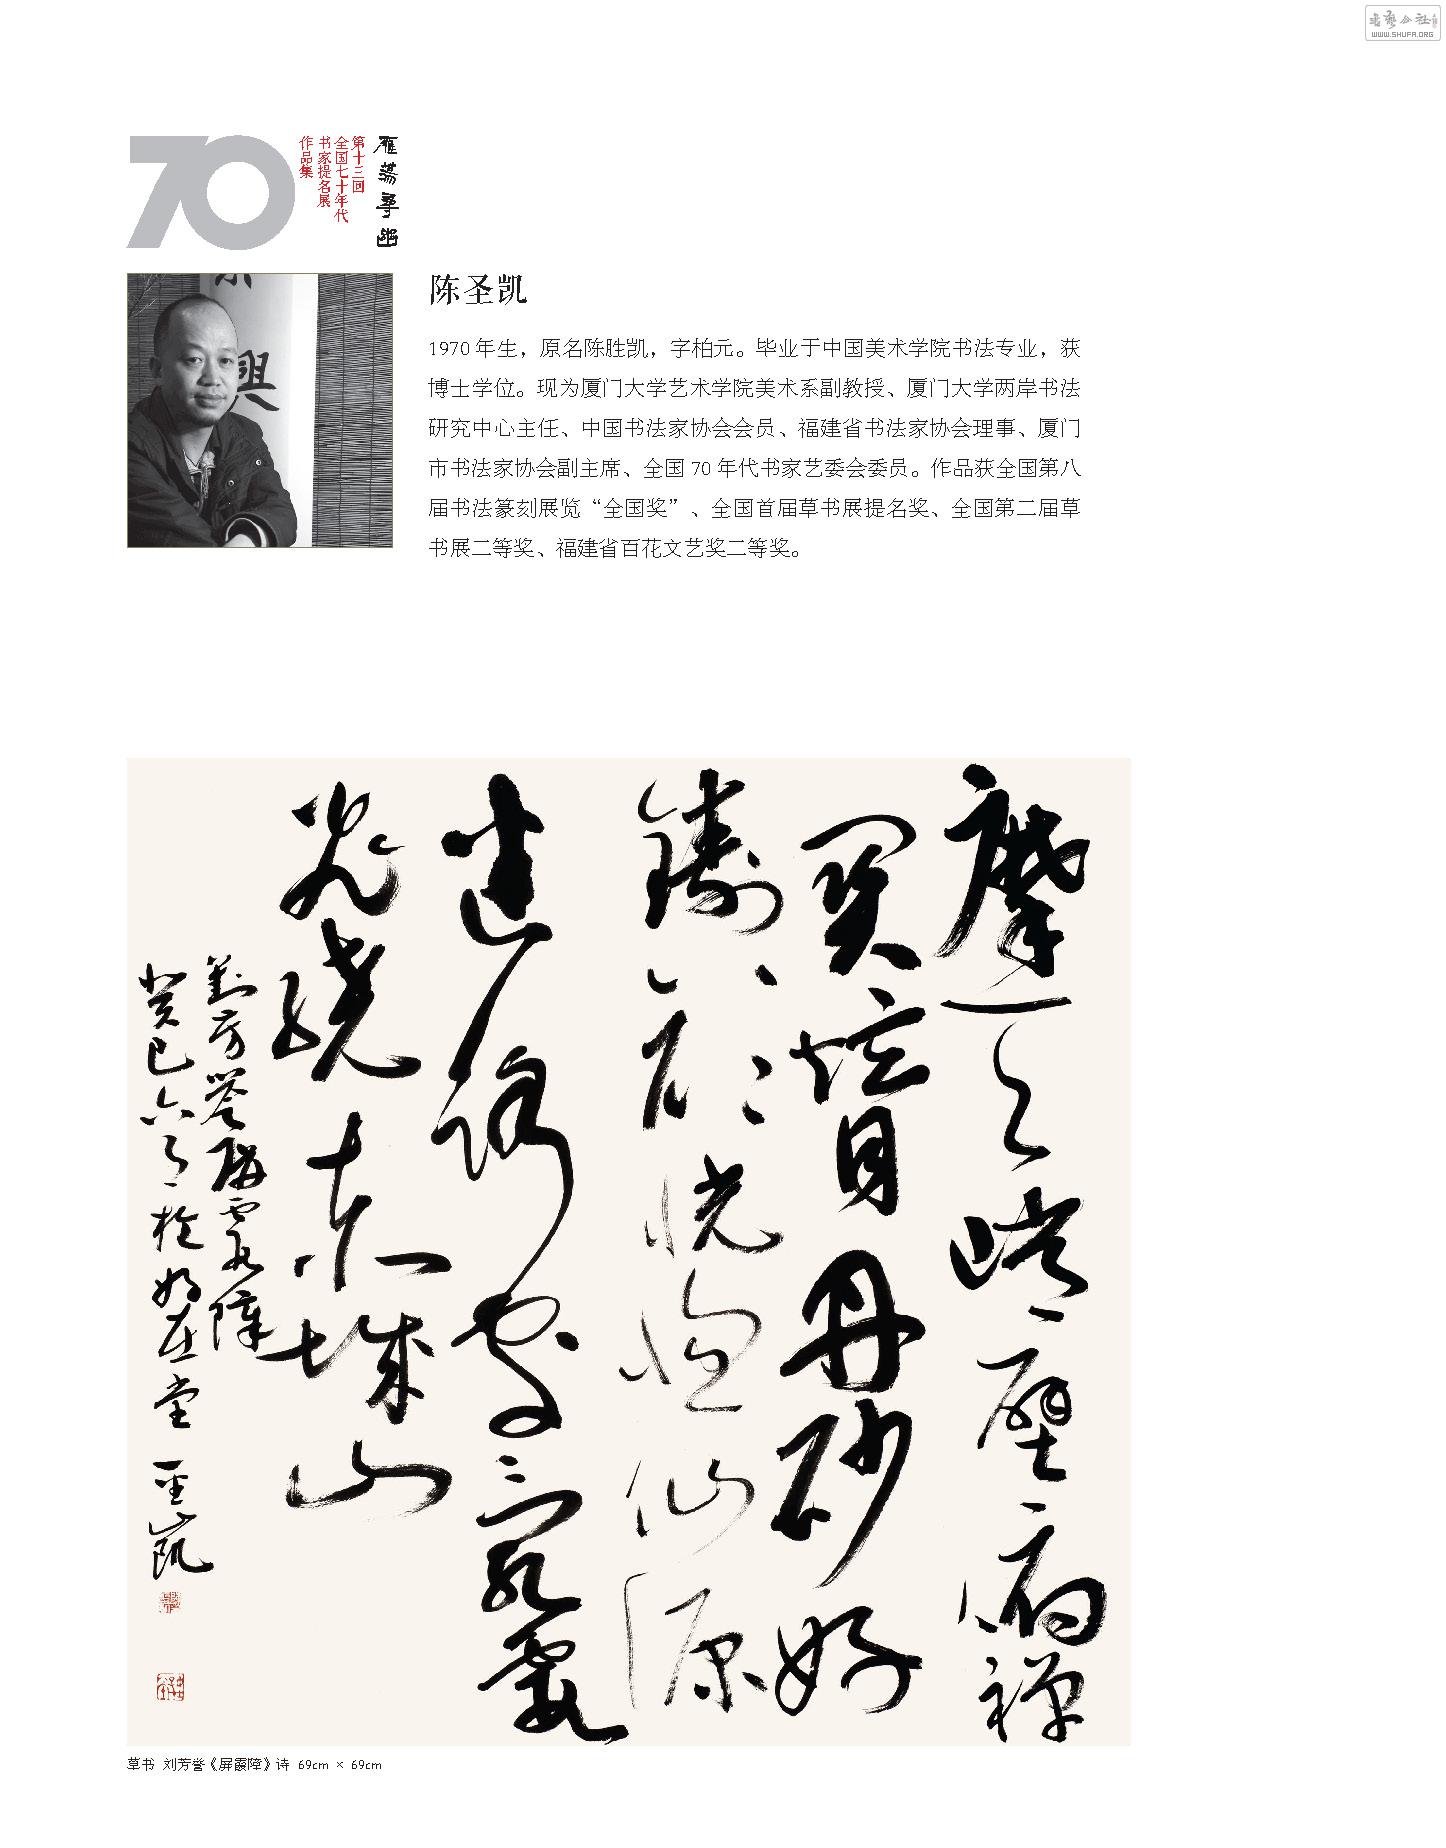 书艺公社
WWW.SHUFA.ORG
70
雁荡寻幽
第十三回
全国七十年代
书家提名展
作品集
興
陈圣凯
1970 年生，原名陈胜凯，字柏元。毕业于中国美术学院书法专业，获
博士学位。现为厦门大学艺术学院美术系副教授、厦门大学两岸书法
研究中心主任、中国书法家协会会员、福建省书法家协会理事、厦门
市书法家协会副主席、全国 70 年代书家艺委会委员。作品获全国第八
届书法篆刻展览“全国奖”、全国首届草书展提名奖、全国第二届草
书展二等奖、福建省百花文艺奖二等奖。
摩天峭壁俯禅
関 丹砂好
鑄顏恍惚仙源
路 家霞
光繞赤城山
劉芳誉屏霞障
癸巳六月於好在堂 圣凯
草书 刘芳誉《屏霞障》诗 69cm × 69cm